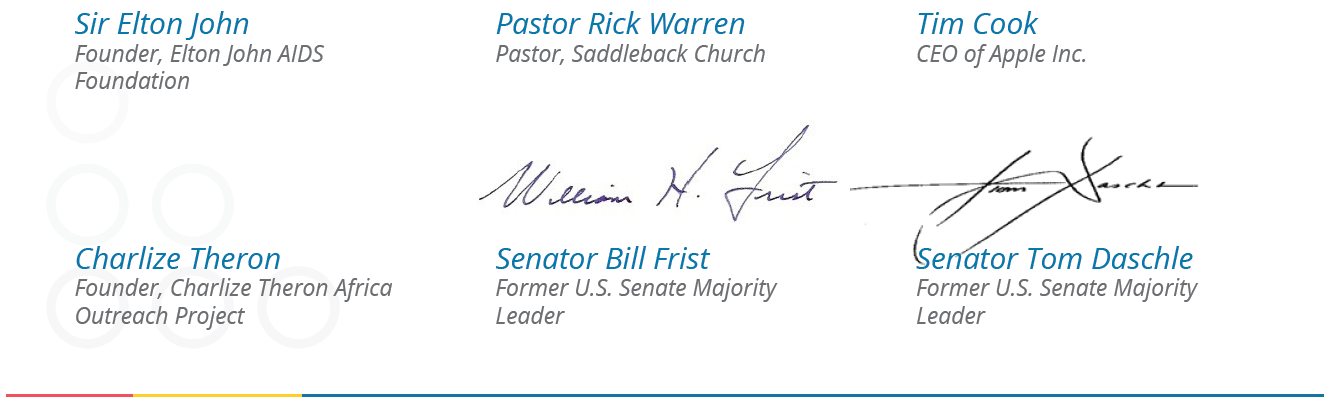 Sir Elton John
Founder, Elton John AIDS
Foundation
Pastor Rick Warren
Pastor, Saddleback Church
Tim Cook
CEO of Apple Inc.
Charlize Theron
Founder, Charlize Theron Africa
Outreach Project
William H. Frist
Senator Bill Frist
Former U.S. Senate Majority
Leader
Tom Daschle
Senator Tom Daschle
Former U.S. Senate Majority
Leader